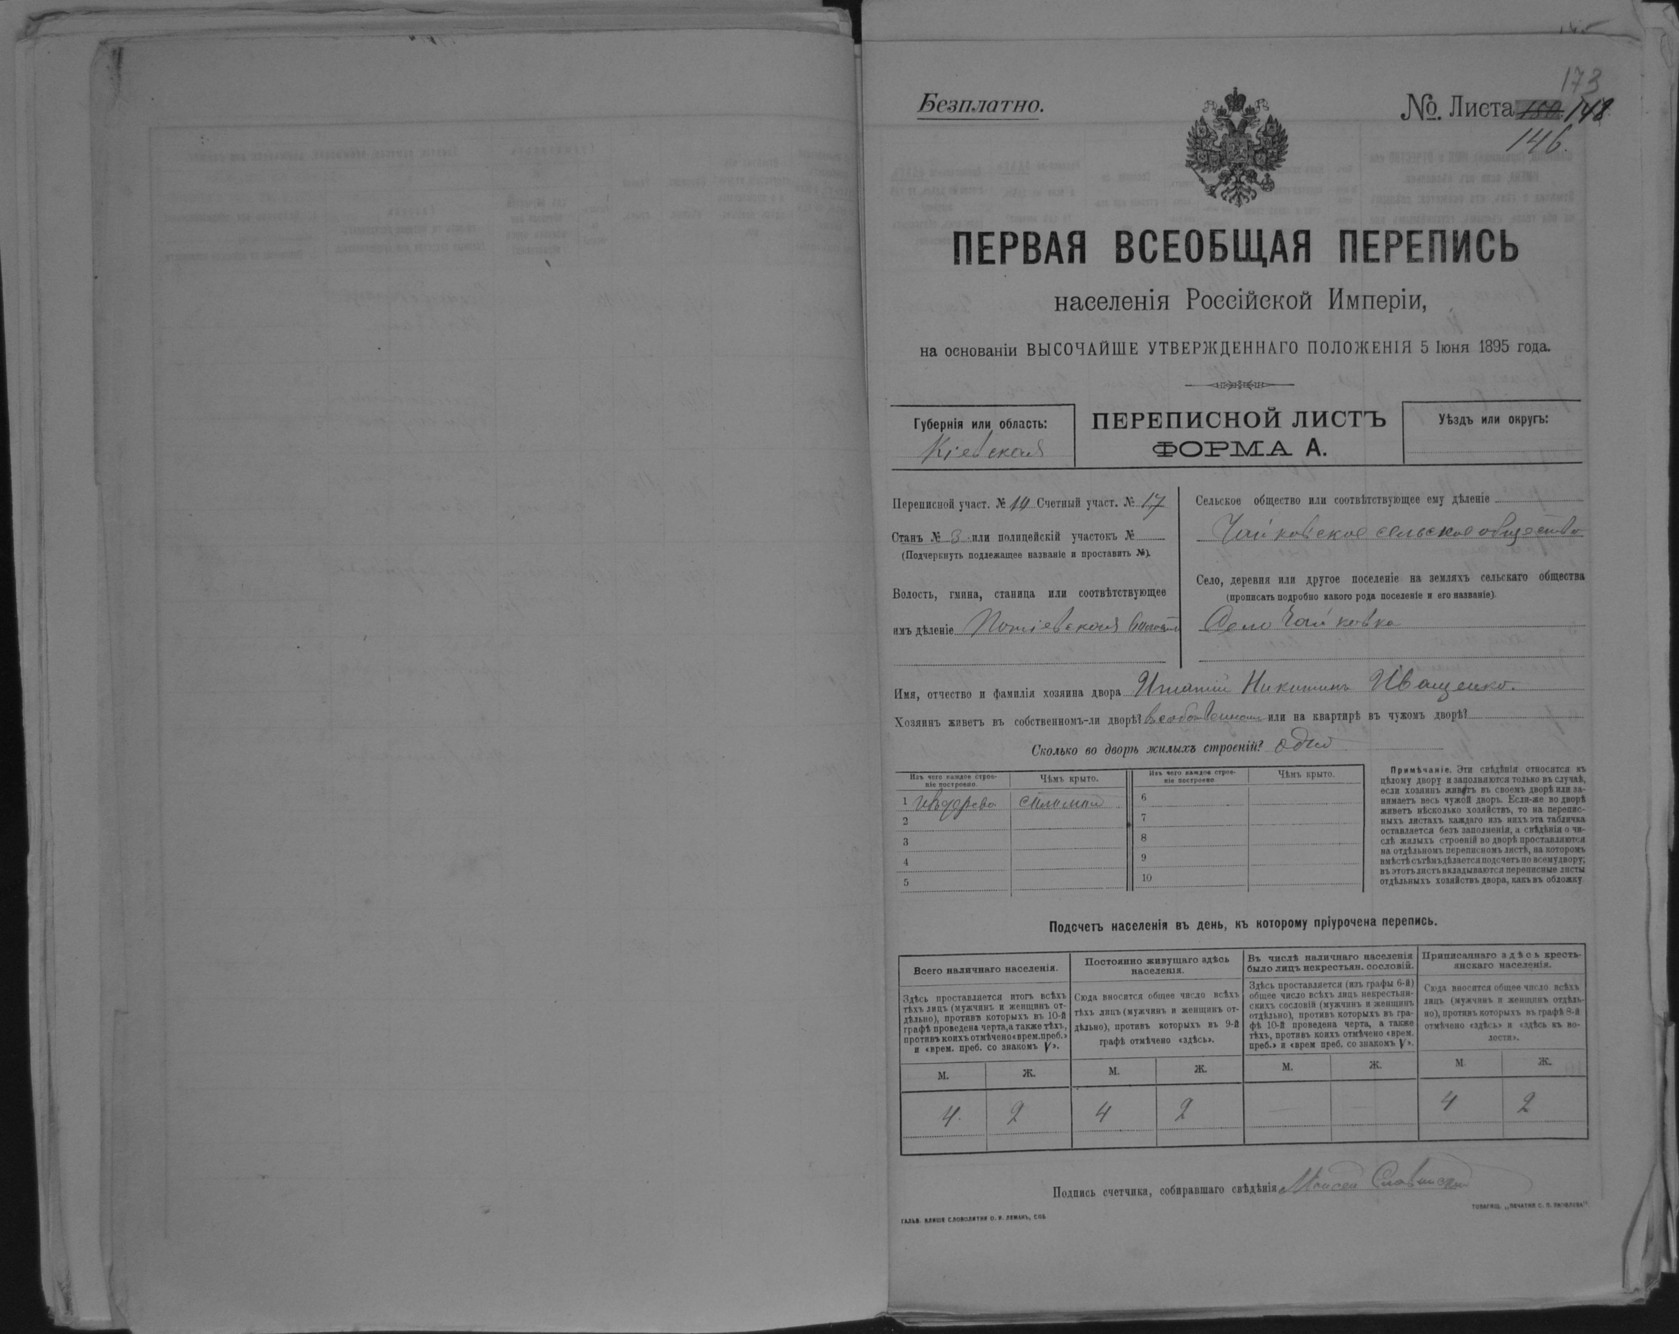 173
Безплатно.
№. Листа 150 148
146.
ПЕРВАЯ ВСЕОБЩАЯ ПЕРЕПИСЬ
населенія Россійской Имперіи,
на основаніи ВЫСОЧАЙШЕ УТВЕРЖДЕННАГО ПОЛОЖЕНІЯ 5 Іюня 1895 года.
Губернія или область:
Кіевская
ПЕРЕПИСНОЙ ЛИСТЪ
ФОРМА А.
Уѣздъ или округъ:
Переписной участ. № 10 Счетный участ. № 17
Станъ № 3 или полицейскій участокъ №
(Подчеркнуть подлежащее названіе и проставить №).
Волость, гмина, станица или соотвѣтствующее
имъ дѣленіе
Сельское общество или соотвѣтствующее ему дѣленіе
Чайковское сельское общество
Село, деревня или другое поселеніе на земляхъ сельскаго общества
(прописать подробно какого рода поселеніе и его названіе).
Село Чайковка
Имя, отчество и фамилія хозяина двора Игнатій Никитинъ Иващенко.
Хозяинъ живетъ въ собственномъ-ли дворѣ? или на квартирѣ въ чужомъ дворѣ?
Сколько во дворѣ жилыхъ строеній? одно
Изъ чего каждое строе-
ніе построено.
Чѣмъ крыто.
1 изъ дерева соломой
2
3
4
5
Изъ чего каждое строе-
ніе построено
Чѣмъ крыто.
6
7
8
9
10
Примѣчаніе. Эти свѣдѣнія относятся къ
цѣлому двору и заполняются только въ случаѣ,
если хозяинъ живетъ въ своемъ дворѣ или за-
нимаетъ весь чужой дворъ. Если-же во дворѣ
живетъ нѣсколько хозяйствъ, то на перепис-
ныхъ листахъ каждаго изъ нихъ эта табличка
оставляется безъ заполненія, а свѣдѣнія о чи-
слѣ жилыхъ строеній во дворѣ проставляются
на отдѣльномъ переписномъ листѣ, на которомъ
вмѣстѣ съ тѣмъ дѣлается подсчетъ по всему двору;
въ этотъ листъ вкладываются переписные листы
отдѣльныхъ хозяйствъ двора, какъ въ обложку
Подсчетъ населенія въ день, къ которому пріурочена перепись.
Всего наличнаго населенія.
Здѣсь проставляется итогъ всѣхъ
тѣхъ лицъ (мужчинъ и женщинъ от-
дѣльно), противъ которыхъ въ 10-й
графѣ проведена черта, а также тѣхъ,
противъ коихъ отмѣчено «врем. преб.»
и «врем. преб. со знакомъ V».
М. Ж.
4. 2
Постоянно живущаго здѣсь
населенія.
Сюда вносится общее число всѣхъ
тѣхъ лицъ (мужчинъ и женщинъ от-
дѣльно), противъ которыхъ въ 9-й
графѣ отмѣчено «здѣсь».
М. Ж.
4 2
Въ числѣ наличнаго населенія
было лицъ некрестьян. сословій.
Здѣсь проставляется (изъ графы 6-й)
общее число всѣхъ лицъ некрестьян-
скихъ сословій (мужчинъ и женщинъ
отдѣльно), противъ которыхъ въ гра-
фѣ 10-й проведена черта, а также
тѣхъ, противъ коихъ отмѣчено «врем.
преб.» и «врем преб. со знакомъ V».
М. Ж.
Приписаннаго здѣсь кресть-
янскаго населенія.
Сюда вносится общее число всѣхъ
лицъ (мужчинъ и женщинъ отдѣль-
но), противъ которыхъ въ графѣ 8-й
отмѣчено «здѣсь» и «здѣсь въ во-
лости».
М. Ж.
4 2
Подпись счетчика, собиравшаго свѣдѣнія Моисей Славинскій
ГАЛЬВ. КЛИШЕ СЛОВОЛИТНИ О. И. ЛЕМАНЪ, СПБ.